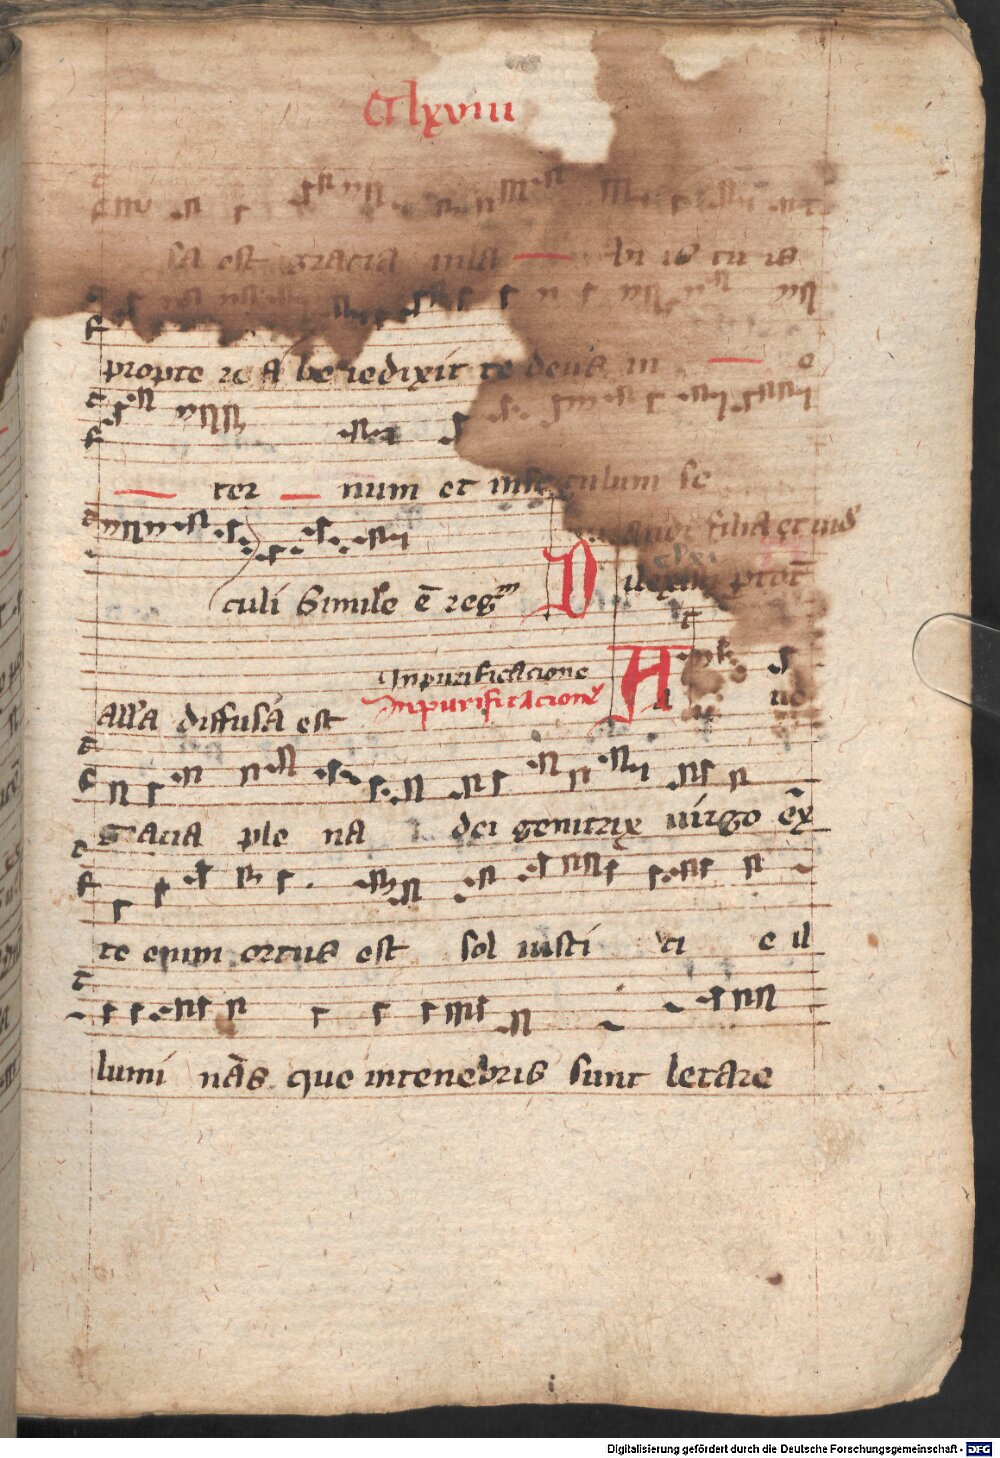 Clxviii
sa est gracia in la — bi is tu is
propte re a benedixit te deus in — e
— ter — num et inse culum se
audi filia et vide
culi Simile e regm Dilexisti
In purificacione
In purificacione
alla diffusa est A ue
gracia ple na dei genitrix uirgo ex
te enim ortus est sol iusti ci e il
lumi nas que in tenebris sunt letare
i
Digitalisierung gefördert durch die Deutsche Forschungsgemeinschaft - DFG